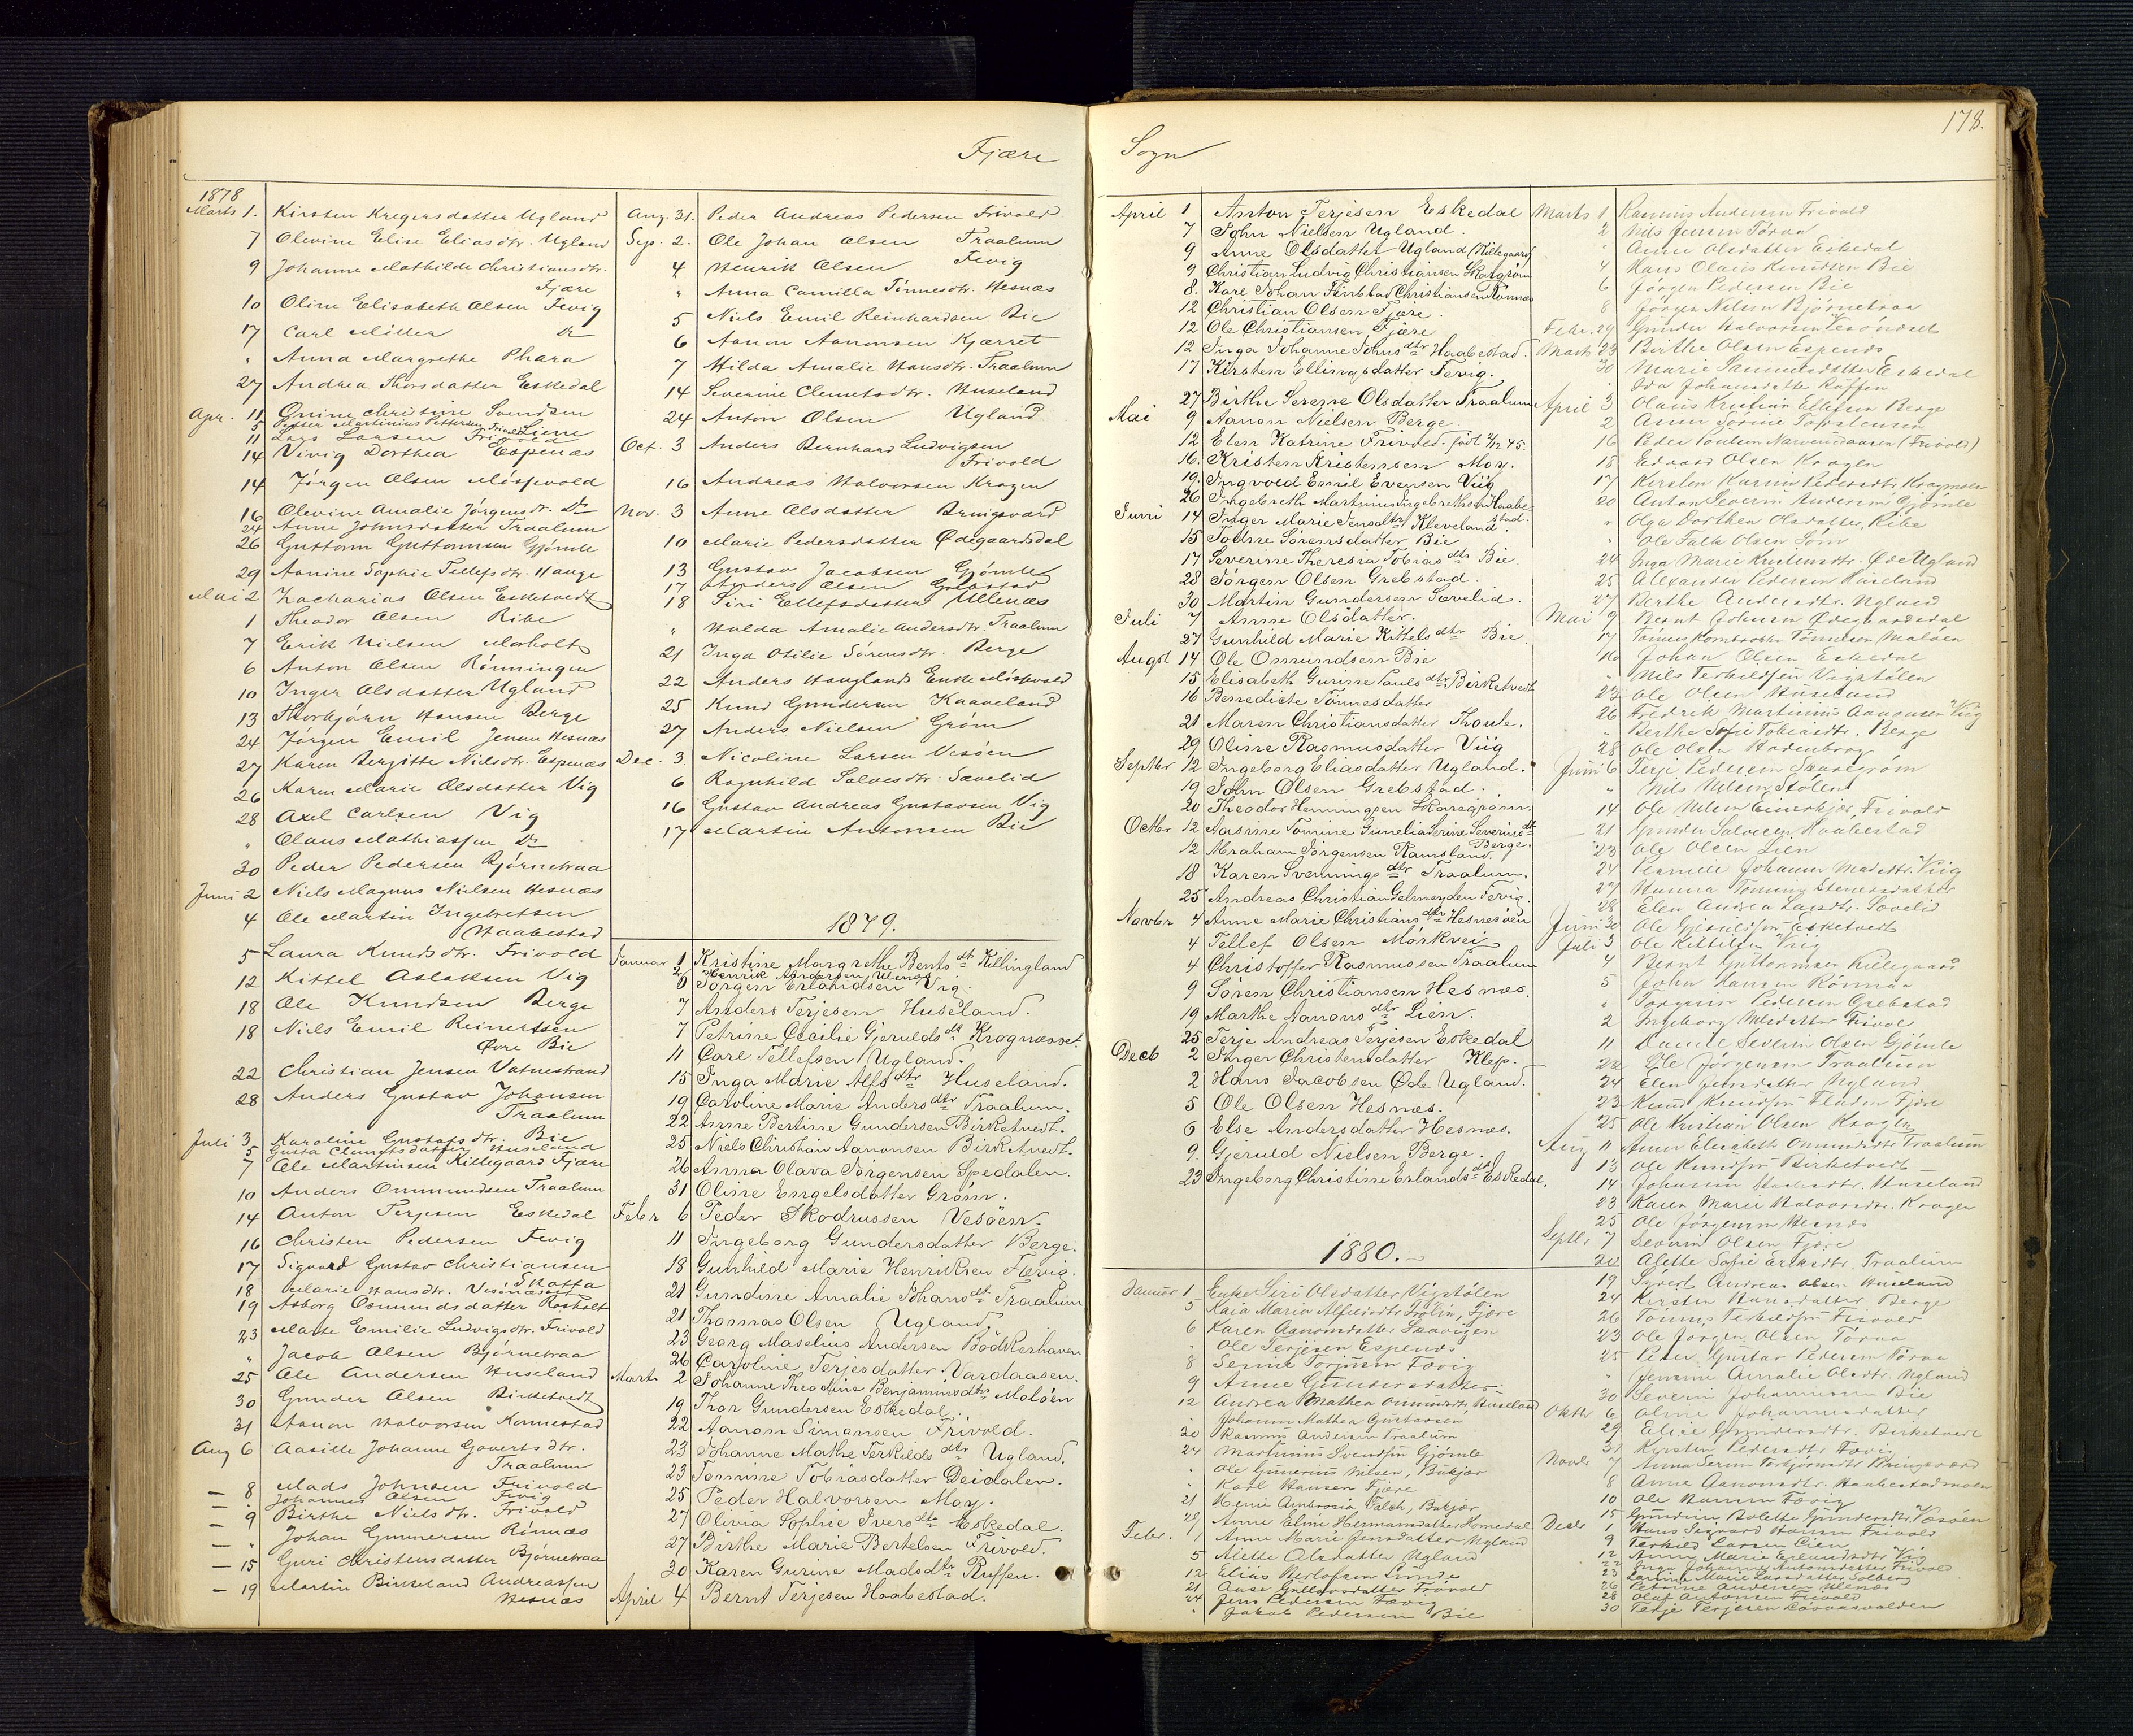 Fjære
Sogn
178.
1878
Marts 1. Kirsten Kregersdatter Ugland
7 Olevine Elise Eliasdtr. Ugland
9 Johanne Mathilde Christiansdtr.
Fjære
10 Oline Elisabeth Olsen Fevig
17 Carl Miller
" Anna Margrethe Phara
27 Andrea Thorsdatter Eskedal
Apr. 11 Gunine Christine Svendsen
5 Petter Martinius Pettersen Frivold Liene
11 Lars Larsen Frivold
14 Vivig Dorthea Espenæs
14 Jørgen Olsen Mósevold
16 Olevine Amalie Jørgensdr. Do
24 Anne Johnsdatter Traalum
26 Guttorm Guttormsen Gjømle
29 Aanine Sophie Tellefsdtr. Hauge
Mai 2 Zacharias Olsen Esketvedt
1 Theodor Olsen Ribe
7 Erik Nielsen Morholt
6 Anton Olsen Rønningen
10 Inger Olsdatter Ugland
13 Thorbjørn Hansen Berge
24 Jørgen Emil Jensen Hesnæs
27 Karen Bergitte Nielsdtr. Espenæs
26 Karen Marie Olsdatter Vig
28 Axel Carlsen Vig
" Olaus Mathiassen Do
30 Peder Pedersen Bjørnetraa
Juni 2 Niels Magnus Nielsen Hesnæs
4 Ole Martin Ingebretsen
Haabestad
5 Laura Knudsdtr. Frivold
12 Kittel Aslaksen Vig
18 Ole Knudsen Berge
18 Niels Emil Reinertsen
Øvre Bie
22 Christian Jensen Vatnestrand
28 Anders Gustav Johansen
Traalum
Juli 3 Karoline Gustafsdtr. Bie
5 Gusta Clemetsdatter Huseland
7 Ole Martinsen Killegaard Fjære
10 Anders Ommundsen Traalum
14 Anton Terjesen Eskedal
16 Christen Pedersen Fevig
17 Sigvard Gustav Christiansen
Skatta
18 Marie Hansdtr. Vesømæsset
19 Asborg Osmundsdatter Rosholt
23 Marte Emilie Ludvigsdtr. Frivold
" Jacob Olsen Bjørnetraa
25 Ole Andersen Huseland
30 Gunder Olsen Birketvedt
31 Aanon Halvorsen Konnestad
Aug 6 Aasille Johanne Govertsdtr.
Traalum
8 Mads Johnsen Frivold
Johannes Olsen Fevig
9 Birthe Nielsdtr. Frivold
" Johan Gunnersen Rønnæs
15 Guri Christensdatter Bjørnetraa
19 Martin Birkeland Andreassen
Hesnæs
Aug. 31. Peder Andreas Pedersen Frivold
Sep. 2. Ole Johan Olsen Traalum
4 Henrik Olsen Fevig
" Anna Camilla Tønnesdtr. Hesnæs
5 Niels Emil Reinhardsen Bie
6 Aanon Aanonsen Kjærret
7 Hilda Amalie Hansdtr. Traalum
14 Severine Clemetsdtr. Huseland
24 Anton Olsen Ugland
Oct. 3 Anders Bernhard Ludvigsen
Frivold
16 Andreas Halvorsen Kragen
Nov. 3 Anne Olsdatter Bringsvard
10 Marie Pedersdatter Ødegaardsdal
13 Gustav Jacobsen Gjømle
17 Anders Olsen Grebstad
18 Siri Ellefsdatter Ullenæs
" Hulda Amalie Andersdtr Traalum
21 Inga Otilie Sørensdtr. Berge
22 Anders Hauglands Enke Mósevold
25 Knud Gundersen Kaaveland
27 Anders Nielsen Grøm
Dec. 3. Nicoline Larsen Vesøen
6 Ragnhild Salvesdtr. Sævelid
16 Gustav Andreas Gustavsen Vig
17 Martin Antonsen Bie
1879.
Januar 1 Kristine Margrethe Bentsdt Killingland
2 Henrik Andersen Ulenæs
6 Jørgen Erlandsen Vig.
7 Anders Terjesen Huseland.
7 Petrine Cecilie Gjeruldsdt Kragnæsset
11 Carl Tellefsen Ugland.
15 Inga Marie Alfsdtr Huseland.
19 Caroline Marie Andersdtr Traalum.
22 Anne Bertine Gundersen Birketvedt.
25 Niels Christian Aanonsen Birketvedt.
26 Anna Olava Jørgensen Spedalen.
31 Oline Engelsdatter Grøm.
Febr 6 Peder Skodrussen Vesøen.
11 Ingeborg Gundersdatter Berge.
18 Gunhild Marie Henriksen Fævig.
21 Gundine Amalie Johansdt Traalum
21 Thomas Olsen Ugland.
23 Georg Maselius Andersen Bødkerhaven
26 Caroline Terjesdatter Vardaasen.
Marts 2 Johanne Theodine Benjaminsdtr Moløen
19 Thor Gundersen Eskedal.
22 Aanon Simonsen Frivold.
23 Johanne Mathe Terkildsdtr Ugland.
23 Tomine Tobiasdatter Deidalen.
25 Peder Halvorsen Moy.
27 Olivia Sophie Iversdtr Eskedal.
27 Birthe Marie Bertelsen Frivold.
30 Karen Gurine Madsdtr Reffen.
April 4 Bernt Terjesen Haabestad.
April 1 Anton Terjesen Eskedal
7 John Nielsen Ugland.
9 Anne Olsdatter Ugland (Killegaard)
9 Christian Ludvig Christiansen Skaregrøm
8. Kare Johan Finblad Christiansen Rønnæs
12 Christian Olsen Fjære.
12 Ole Christiansen Fjære
12 Inga Johanne Johnsdtr Haabestad.
17 Kirsten Ellingsdatter Fevig.
27 Birthe Serene Olsdatter Traalum
Mai 9 Aanon Nielsen Berge.
12 Elen Katrine Frivold. født 2/12 45.
16. Kristen Kristensen Moy.
19. Ingvold Emil Evensen Viig
26 Ingebreth Martinius Ingebrethsen Haabe-
stad.
Juni 14 Inger Marie Jensdtr Kleveland
15 Todne Sørensdatter Bie
17 Severine Theresia Tobiasdtr Bie
28 Jørgen Olsen Grebstad.
30 Martin Gundersen Sævelid.
Juli 7 Anne Olsdatter.
27 Gunhild Marie Kittelsdtr Bie.
Augst 14 Ole Omundsen Bie
15 Elisabeth Gurine Paulsdtr Birketvedt
16 Benedicte Tønnesdatter
21 Maren Christiansdatter Thoule.
29 Oline Rasmusdatter Viig
Septbr 12 Ingeborg Eliasdatter Ugland.
19 John Olsen Grebstad.
20 Theodor Henningsen Skaregrøm.
Octbr 12 Aasine Tomine Gunelia Serine Severinsdt
Berge.
12 Abraham Jørgensen Ramsland.
18 Karen Sveinungsdtr Traalum.
25 Andreas Christian Gelmeyden Fevig.
Novbr 4 Anne Marie Christiansdtr Hesnesøen
4 Tellef Olsen Mørkvei
4 Christoffer Rasmussen Traalum
9 Søren Christiansen Hesnes.
19 Marthe Aanonsdtr Lien.
25 Terje Andreas Terjesen Eskedal
Decb 2 Inger Christensdatter Klep.
2 Hans Jacobsen Øde Ugland.
5 Ole Olsen Hesnes.
6 Else Andersdatter Hesnes.
9. Gjeruld Nielsen Berge.
23 Ingeborg Christine Erlandsdtr Eskedal.
1880.
Januar 1 Enke Siri Olsdatter Vigstølen
5 Kaia Maria Alfredsdtr Trolin, Fjære
6 Karen Aanonsdatter Skavigen
" Ole Terjesen Espenes
8 Serine Torjusen Fævig
9 Anne Gundersdatter
12 Andrea Mathea Omundsdtr Huseland
" Johanne Mathea Gustavsen
20 Rasmus Andersen Traalum
24 Martinius Svendsen Gjømle
" Ole Gunerius Nilsen, Bukjær
" Karl Hansen Fjære
21 Henie Ambrosia Falch, Bukjær
28 Anne Eline Hermansdatter Homedal
Febr. 1 Anne Marie Jensdatter Ugland
5 Alette Olsdatter Ugland
12 Elias Bertofsen Linde
21 Aase Gullovsdatter Frivold
24 Jens Pedersen Fævig
" Jakob Pedersen Bie
Marts 1 Rasmus Andersen Frivold
2 Nils Jensen Tøraa
" Anne Olsdatter Eskedal
4 Hans Olaus Knudsen Bie
6 Jørgen Pedersen Bie
8 Jørgen Nilsen Bjørnetraa
Febr. 29 Gunder Halvorsen Vesøndset
Marts 23 Birthe Olsen Espenes
30 Marie Samuelsdatter Eskedal
" Ida Johansdatter Røffen
April 3 Olaus Kristian Ellefsen Berge
2 Anne Tomine Torstensen
16 Peder Poulsen Narvesdaasen (Frivold)
18 Edvard Olsen Kragen
17 Kirsten Karine Pedersdtr Kragmoen
20 Anton Severin Andersen Gjømle
" Olga Dorthea Olsdatter, Ribe
" Ole Falk Olsen Søm
24 Inga Marie Knudsdtr. Øde Ugland
25 Alexander Pedersen Huseland
27 Berthe Andersdtr. Ugland
Mai 9 Bernt Johnsen Ødegaardsdal
17 Tønnes Kornbrokke Tønnesen Maløen
16 Johan Olsen Eskedal
" Nils Terkildsen Vigstølen
23 Ole Olsen Huseland
26 Fredrik Martinius Aanonsen Viig
" Berthe Sofie Tobiasdtr. Berge
28 Ole Olsen Bodenbrog
Juni 6 Terje Pedersen Skaregrøm
" Nils Nilsen Stølen
14 Ole Nilsen Einerkjær, Frivold
21 Gunder Salvesen Haabestad
23 Ole Olsen Lien
24 Pernille Johanne Madsdtr. Viig
27 Hanna Tomine Stenersdatter
28 Elen Andrea Larsdtr. Sævelid
Juni 30 Ole Gjeruldsen Esketvedt
Juli 3 Ole Kittilsen Viig
4 Bernt Guttormsen Killegaard
5 John Hansen Rønnæs
" Torgrim Pedersen Grebstad
2 Ingeborg Nilsdatter Frivol
11 Daniel Severin Olsen Gjømle
22 Ole Jørgensen Traalum
24 Elen Jensdatter Ugland
23 Knud Knudsen Fladen Fjære
25 Ole Kristian Olsen Kragen
Aug 11 Anne Elisabeth Omundsdtr Traalum
13 Ole Knudsen Birketvedt
14 Johanne Huseland
23 Karen Marie Halvorsdtr. Kragen
25 Ole Jørgensen Hesnæs
Septbr 7 Severin Olsen Fjære
20 Alette Sofie Eriksdtr. Traalum
19 Syvert Andreas Olsen Huseland
24 Kirsten Hansdatter Berge
26 Tønnes Terkildsen Frivold
23 Ole Jørgen Olsen Tøraa
25 Peter Gustav Pedersen Tøraa
" Jensine Amalie Olsdtr. Ugland
30 Severin Johannesen Bie
Oktbr 6 Oline Johannesdatter
29 Elise Gundersdtr. Birketvedt
31 Kirsten Pedersdtr Fævig
Novbr 7 Anna Serine Torbjørnsdtr Bringsværd
8 Anne Aanonsdtr. Haabestadmoen
10 Ole Hansen Fævig
15 Gundine Bolette Gundersdtr. Væsøen
Decbr 1 Hans Sigvard Hansen Frivold
9 Terkild Larsen Lien
12 Anne Marie Erlandsdtr Vig
22 Inga Johanne Antonsdatter Frivold
23 Lovise Marie Larsdatter Solberg
26 Petrine Andersen Ulenæs
28 Olaf Antonsen Frivold
30 Terje Terjesen Løvaasvolden